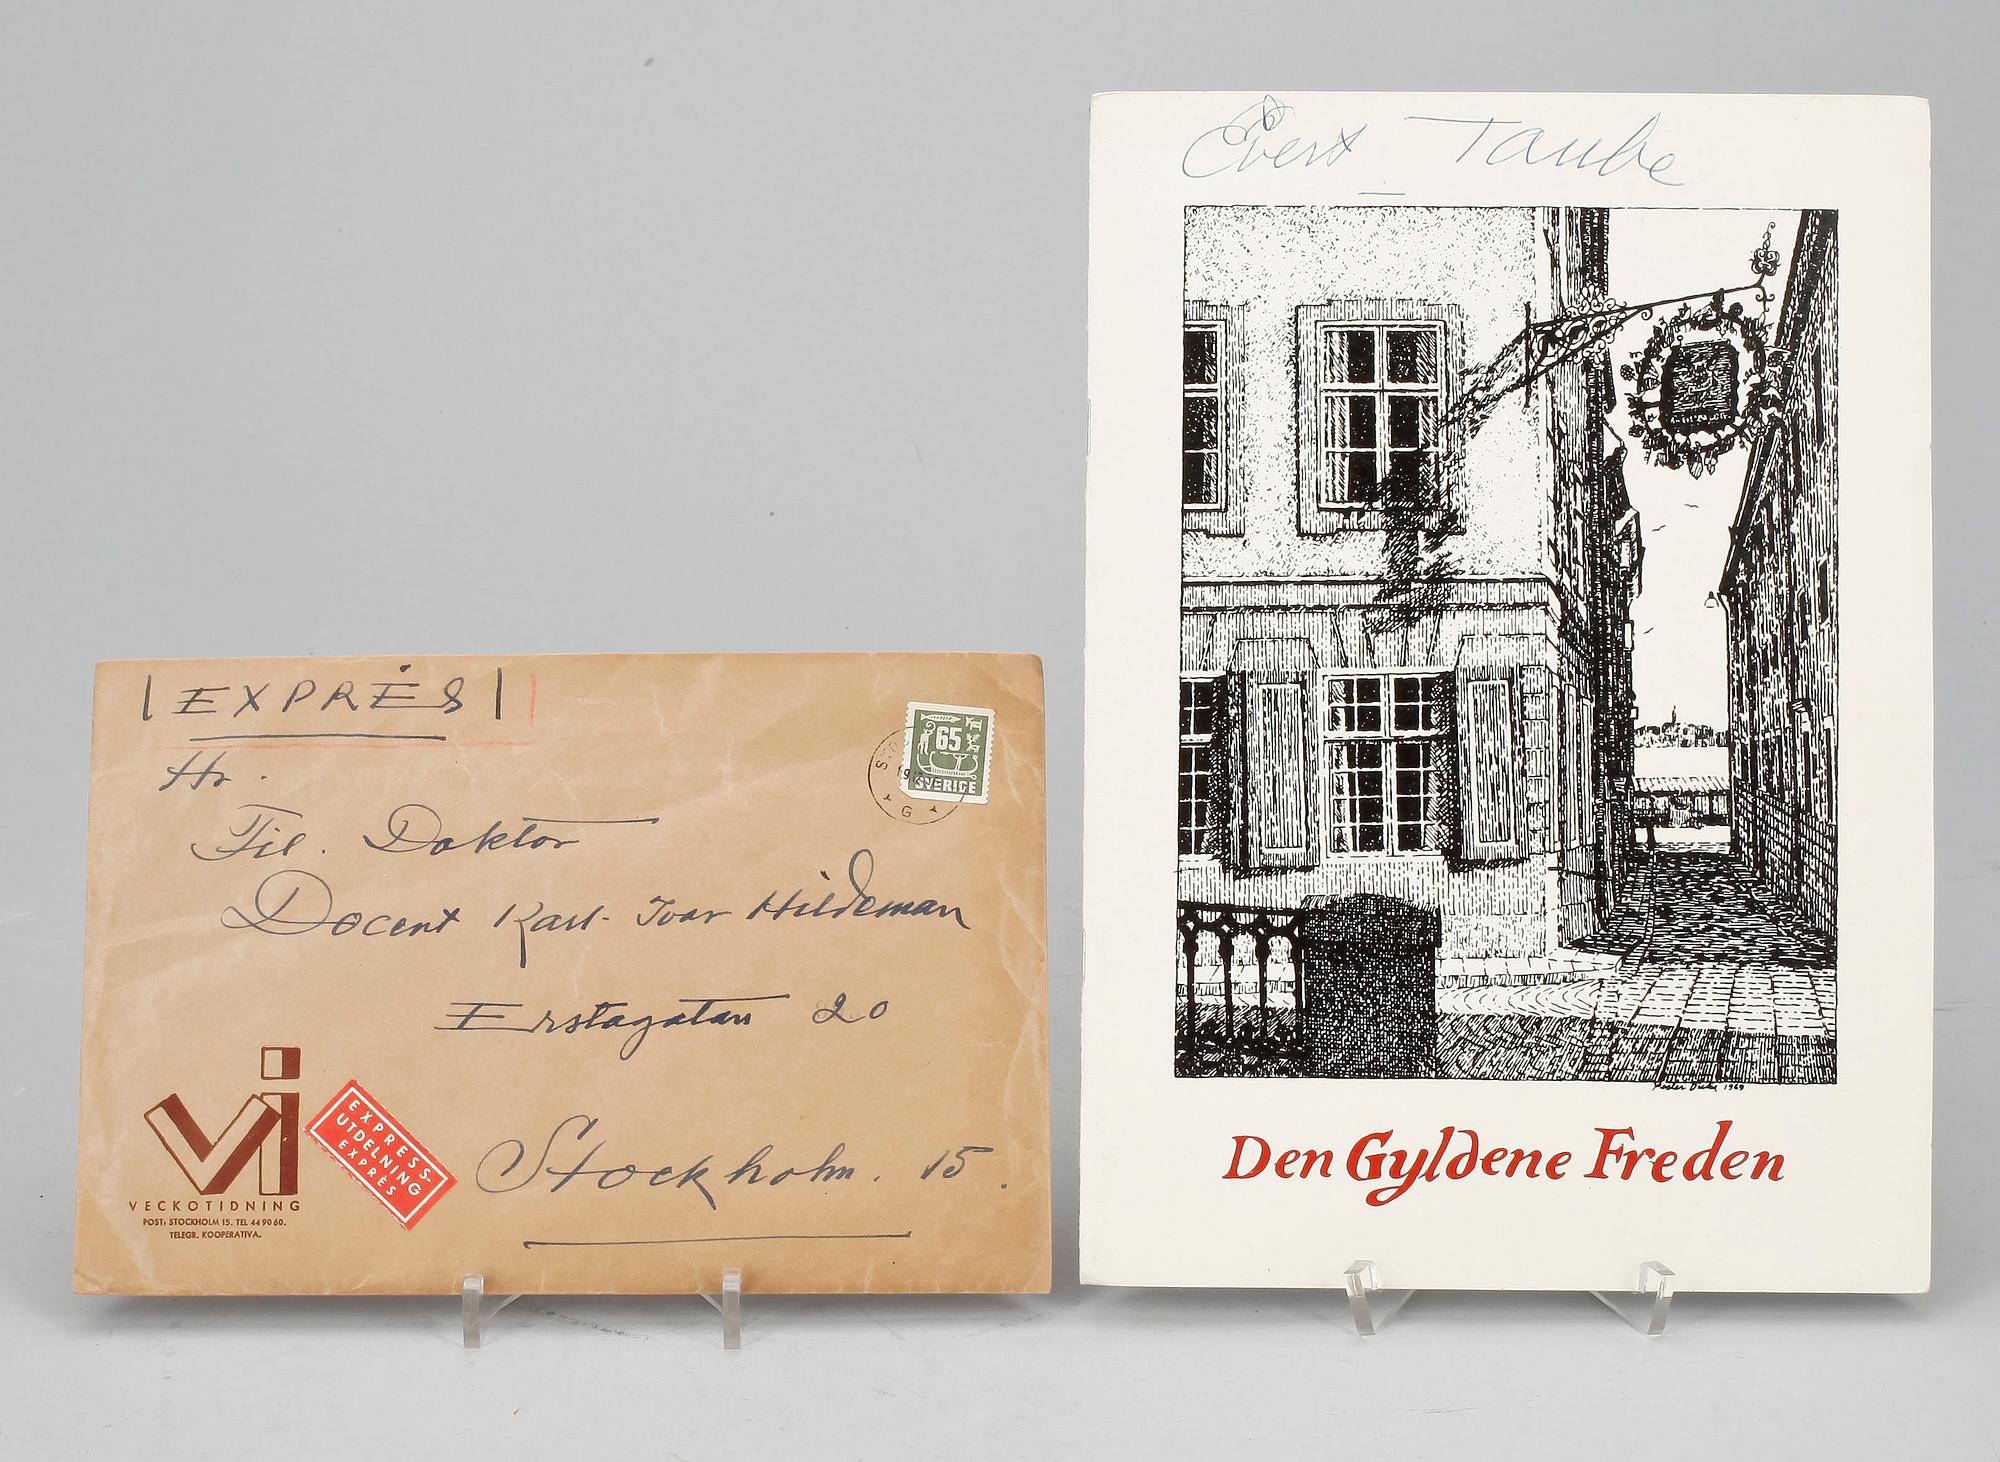 EXPRÈS
Hr.
Fil. Doktor
Docent Karl-Ivar Hildeman
Erstagatan 20
Stockholm. 15.
65
SVERIGE
G
vi
VECKOTIDNING
POST: STOCKHOLM 15. TEL 44 90 60.
TELEGR. KOOPERATIVA.
EXPRESS-
UTDELNING
EXPRÈS
Evert Taube
1969
Den Gyldene Freden